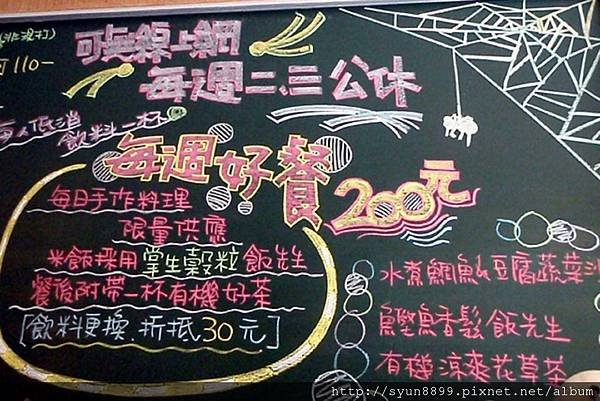 可無線上網
110-
每週二、三公休
每人低消
飲料一杯
每週好餐200元
每日手作料理
限量供應
米飯採用掌生穀粒飯先生
餐後附帶一杯有機好茶
[飲料更換 折抵30元]
水煮鯛魚&豆腐蔬菜
鰹魚香鬆飯先生
有機涼爽花草茶
http://syun8899.pixnet.net/album